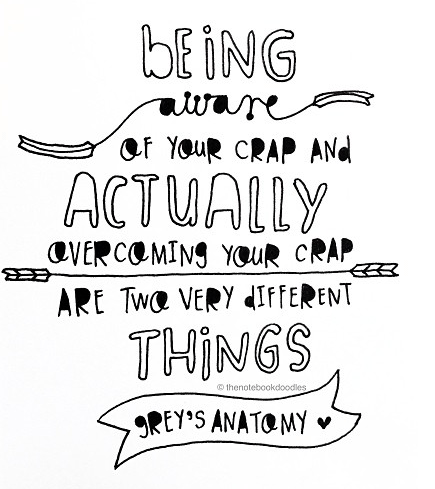 BEING
aware
OF YOUR CRAP AND
ACTUALLY
OVERCOMING YOUR CRAP
ARE TWO VERY DIFFERENT
THINGS
© thenotebookdoodles
GREY'S ANATOMY ♥